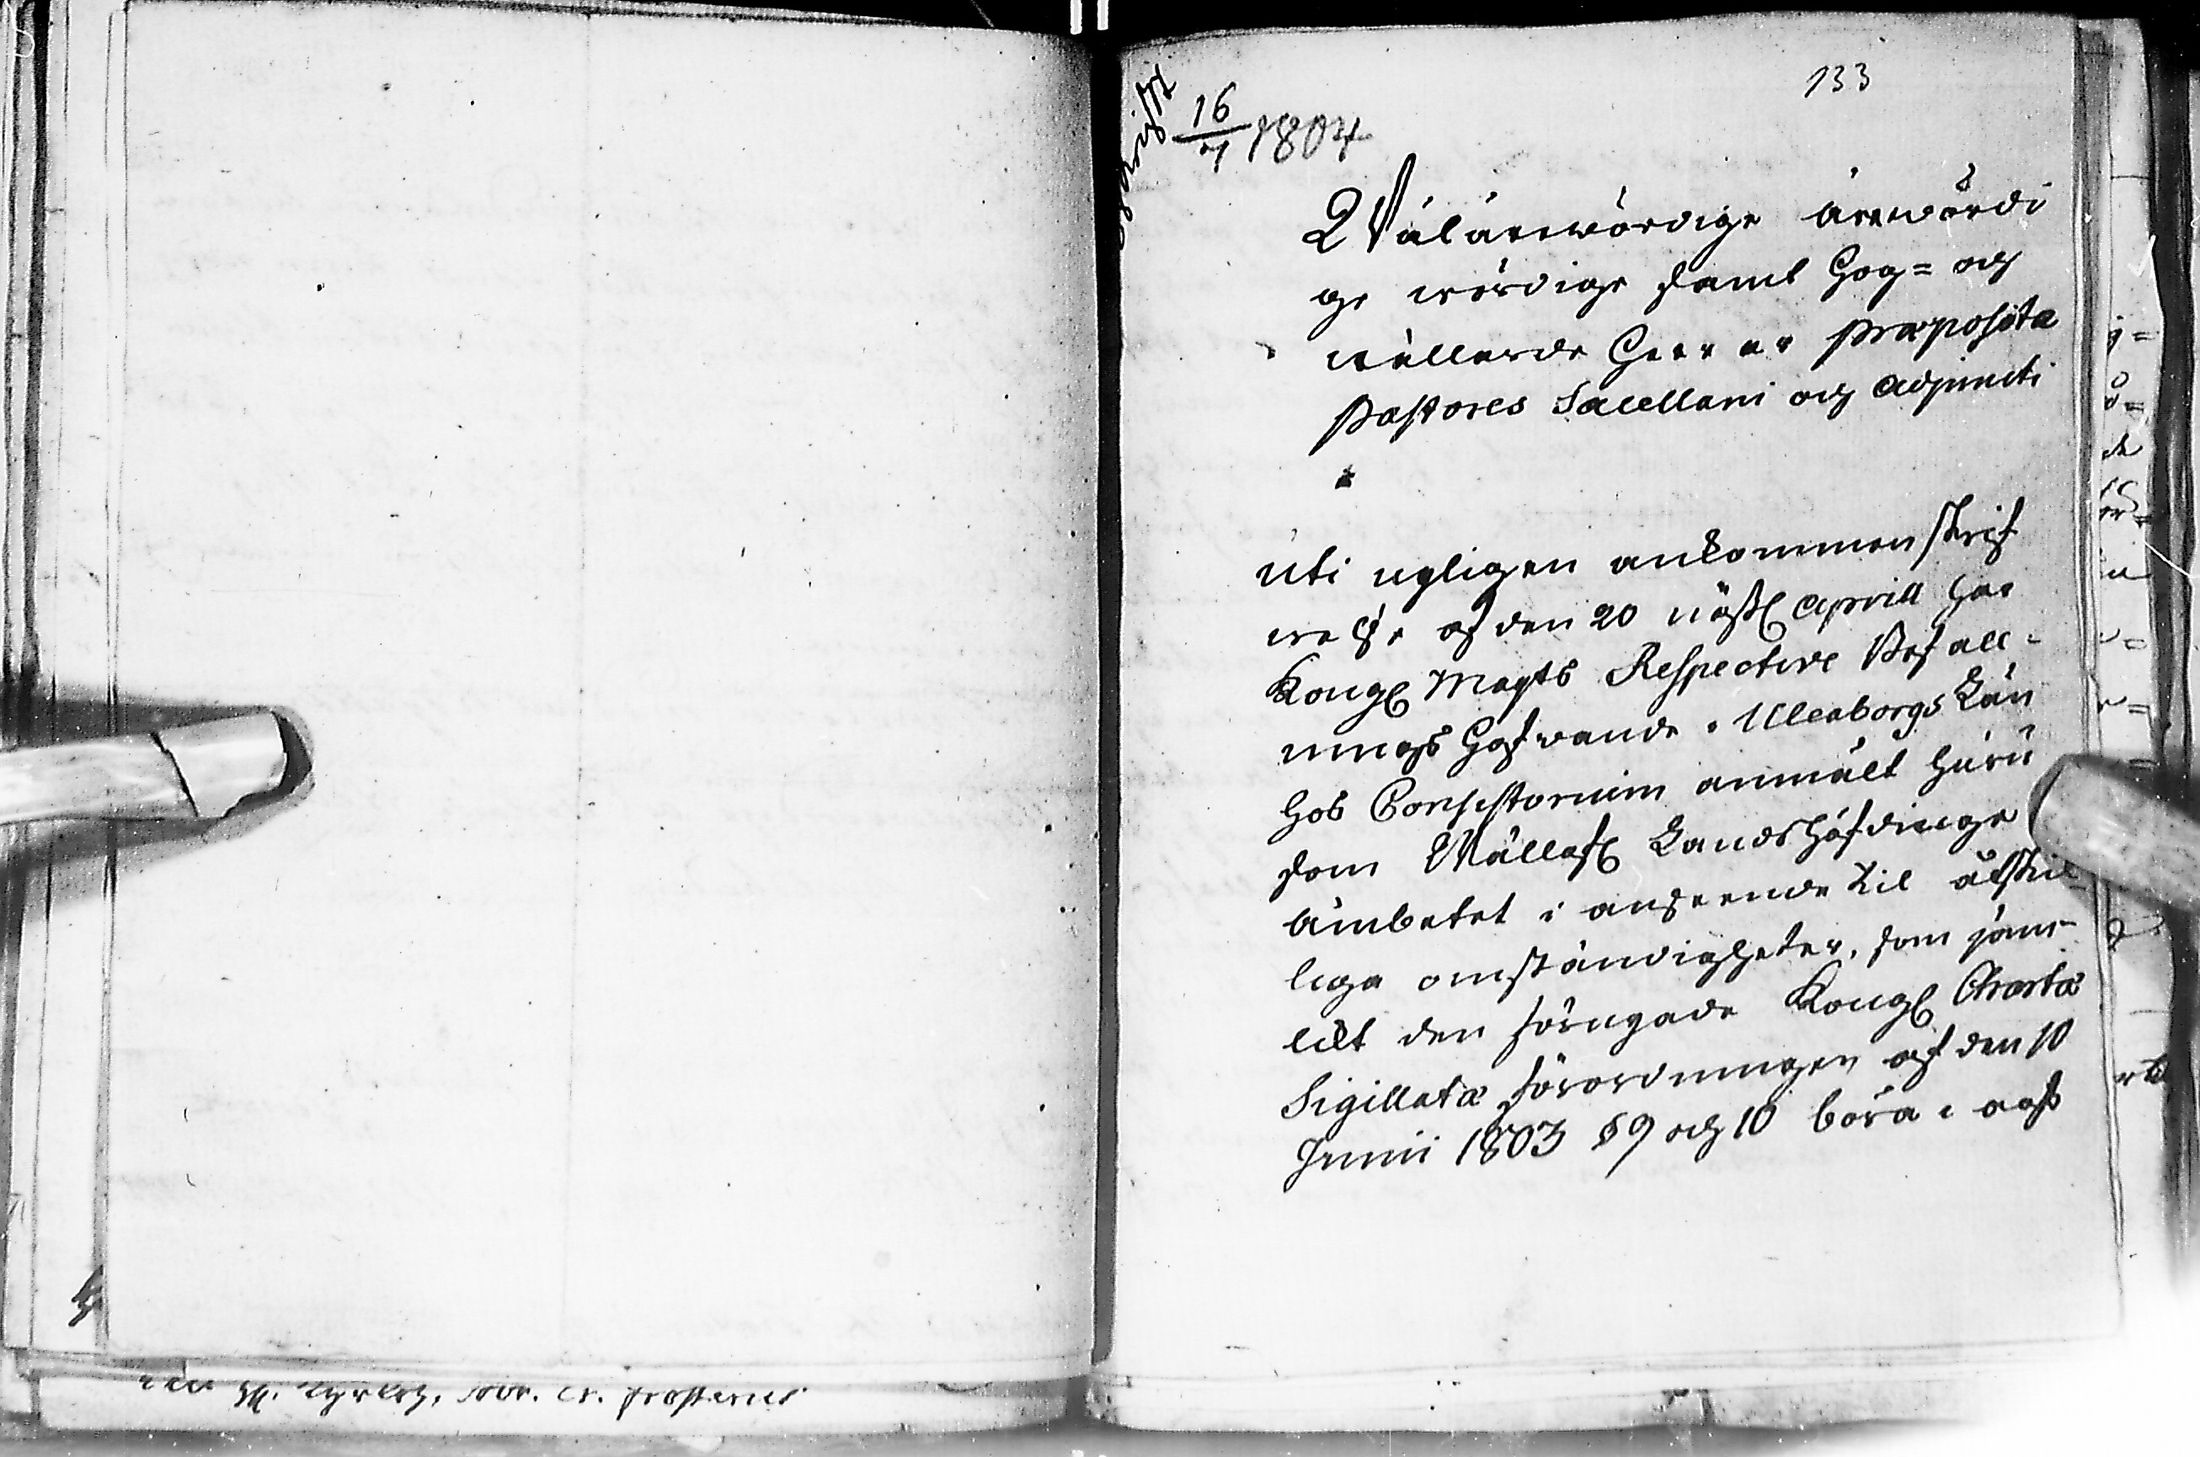 133
16/7 1804
Wälärewördige ärewördi
ge wördige samt Hög= och
wällärde Herrar Præposita
Pastores Sacellani och Adjuncti
uti nyligen ankommen skrif
welse af den 20 nästl Aprill har
Kongl Maÿts Respective Befall-
nings Hafwande i Uleaborgs Län
hos Consistorium anmält huru
som Wällofl Landshöfdinge
ämbetet i anseende til åtskil-
liga omständigheter, som jäm-
likt den förnyade Kongl Charta
Sigillata förordningen af den 10
Junii 1803 § 9 och 10 böra i agt